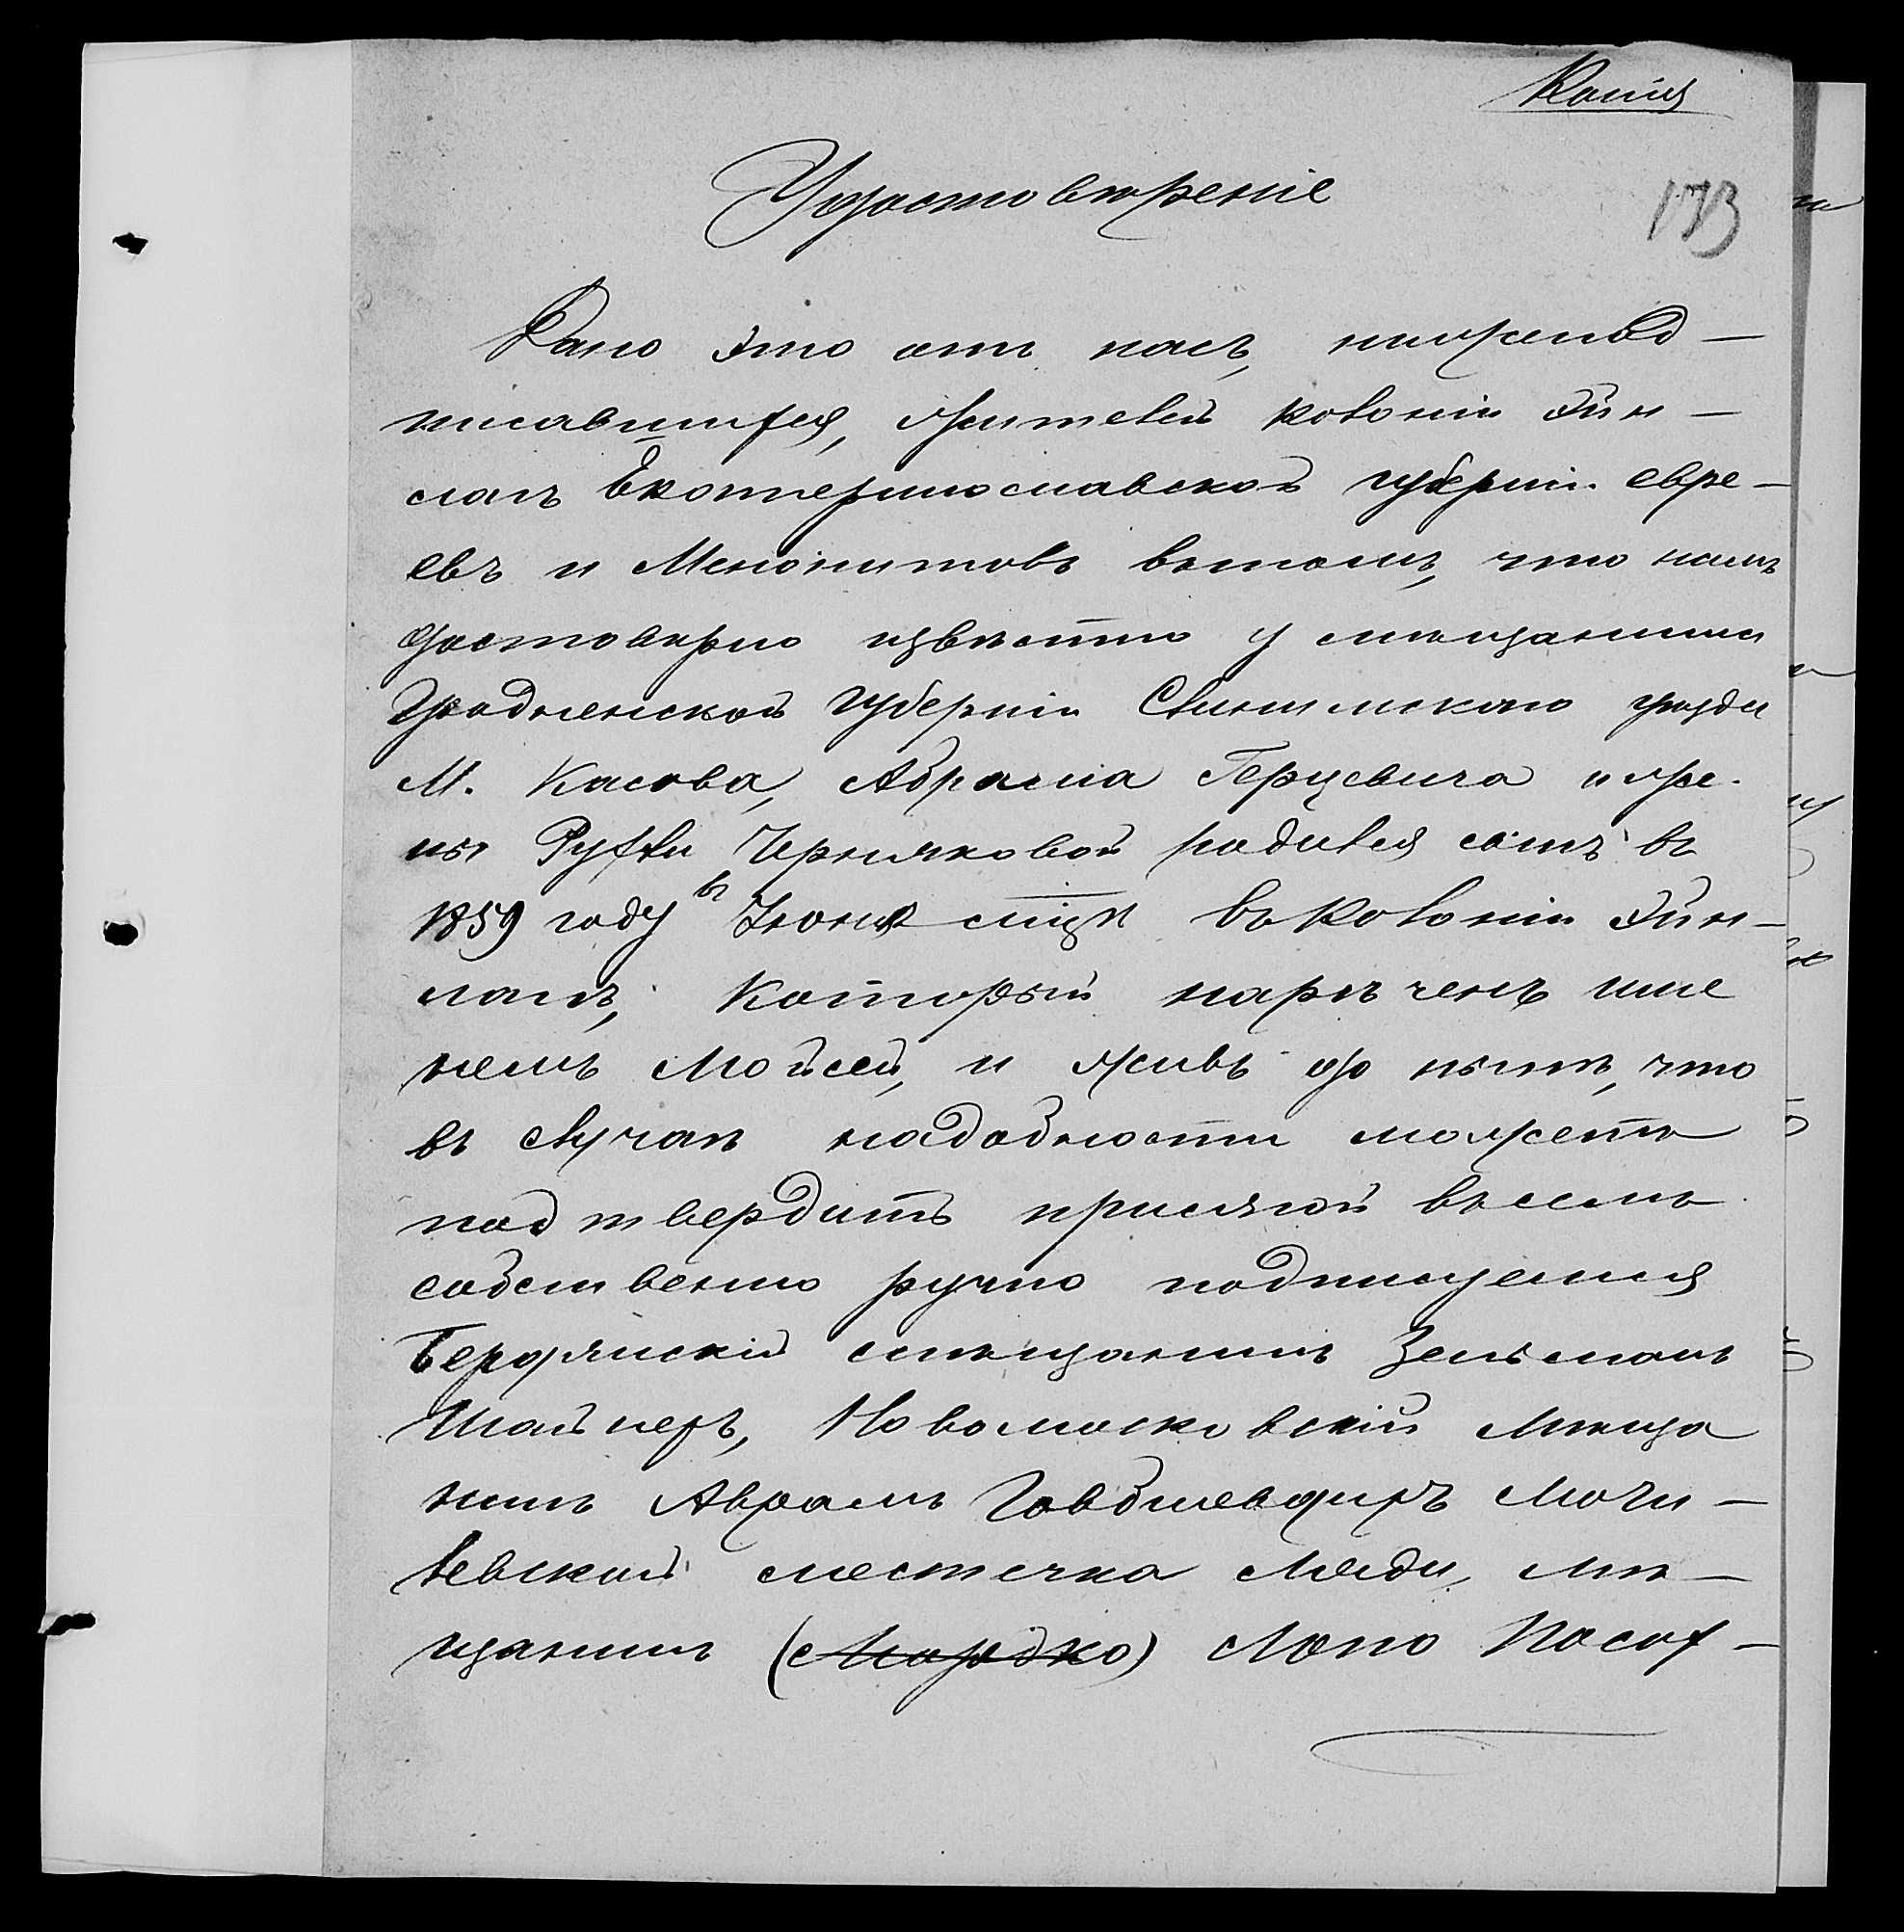 Копія
Удостовѣреніе
173
Дано это отъ насъ, нижепод-
писавшихся, жителей колоніи Эйн-
лагъ Екатеринославской губерніи евре-
евъ и Менонитовъ вътомъ, что намъ
достовѣрно извѣстно у мѣщанина
Гродненской губерніи Слонимскаго уѣзда
М. Касова, Абрама Герцевича и же-
ны Рухли Черняковой родился сынъ въ
1859 году въ Іюнѣ мцѣ въ Колоніи Эйн-
лагъ, который нарѣченъ име
немъ Мойсей, и живъ до нынѣ, что
въ случаѣ надобности можемъ
подтвердить присягой въ семъ
собственно ручно подписуемся
Бердянскій мѣщанинъ Зельманъ
Шайнеръ, Новомосковскій Мѣща
нинъ Аврамъ Гольдшмидтъ Моги-
левской местечка Ляди, мѣ-
щанинъ (Мордко) Лейпо Насох-